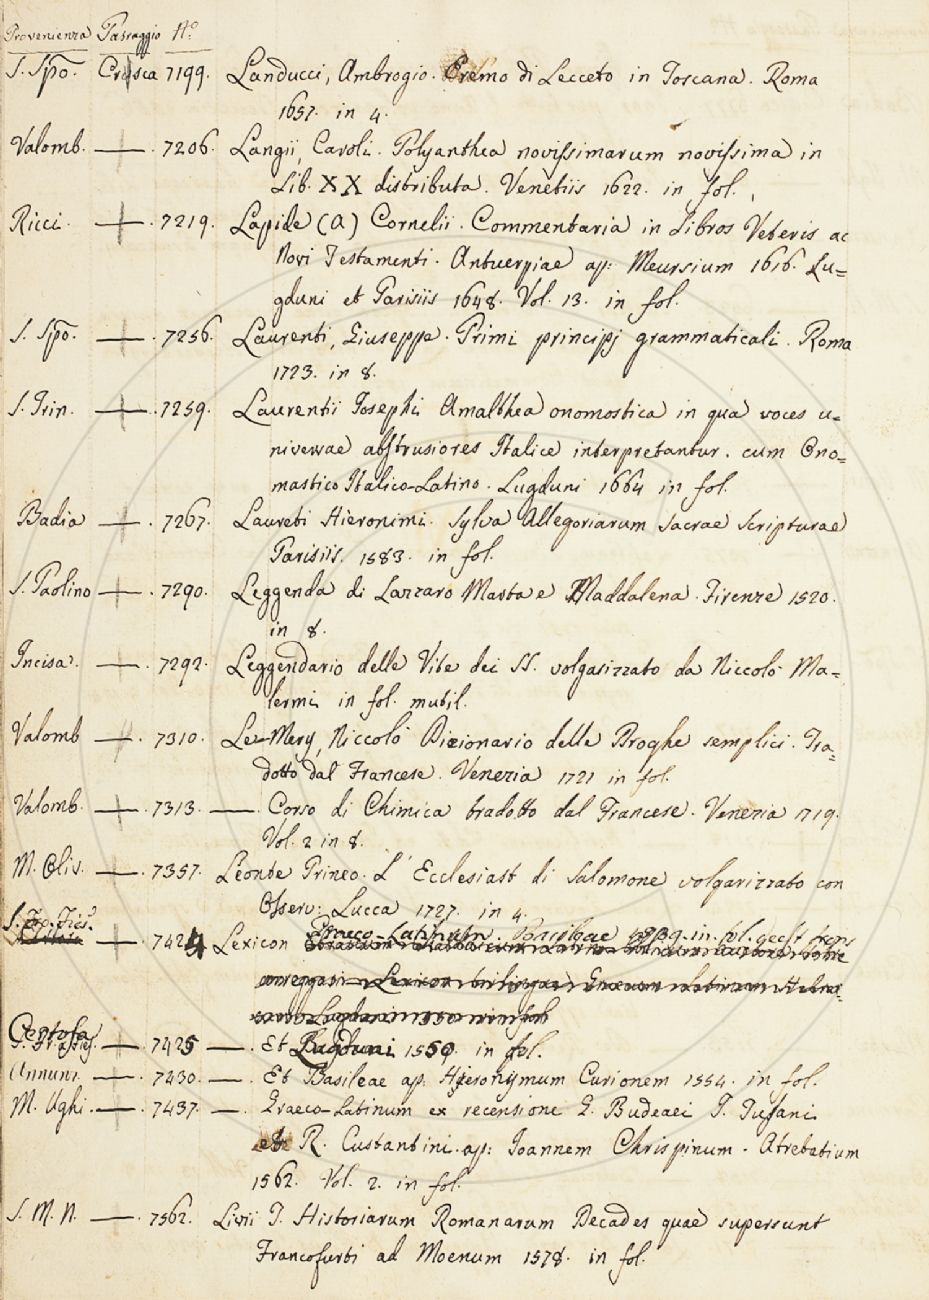 Provenienza Passaggio N.o
S. Spo. Crusca 7199. Landucci, Ambrogio. Eremo di Lecceto in Toscana. Roma
1657. in 4.
Valomb. — . 7206. Langii, Caroli. Polyanthea novissimarum novissima in
Lib. XX distributa. Venetiis 1622. in fol.
Ricci. — . 7219. Lapide (a) Cornelii. Commentaria in Libros Veteris ac
Novi Testamenti. Antuerpiae ap: Meursium 1616. Lu=
gduni et Parisiis 1648. Vol. 13. in fol.
S. Spo. — . 7256. Laurenti, Giuseppe. Primi principj grammaticali. Roma
1723. in 8.
S. Trin. — . 7259. Laurentii Josephi Amalthea onomostica in qua voces u=
niversae abstrusiores Italice interpretantur. cum Ono=
mastico Italico-Latino. Lugduni 1664 in fol.
Badia — . 7267. Laureti Hieronimi. Sylva Allegoriarum Sacrae Scripturae
Parisiis. 1583. in fol.
S. Paolino — . 7290. Leggenda di Lazzaro Marta e Maddalena. Firenze 1520.
in 8.
Incisa. — . 7292. Leggendario delle Vite dei SS. volgarizzato da Niccolò Ma=
lermi in fol. mutil.
Valomb — . 7310. Le-Mery, Niccolò Dizionario delle Droghe semplici. Tra=
dotto dal Francese. Venezia 1721 in fol.
Valomb. — . 7313. — . Corso di Chimica tradotto dal Francese. Venezia 1719.
Vol. 2 in 8.
M. Oliv. — . 7357. Leonte Prineo. L' Ecclesiast di Salomone volgarizzato con
Osserv: Lucca 1727. in 4.
— . 7424 Lexicon Graeco-Latinum. Basileae in fol.
Certosa — . 7425 — . Et Lugduni 1550. in fol.
Annun. — . 7430. — . Et Basileae ap. Hieronymum Curionem 1554. in fol.
M. Ughi. — . 7437. — . Graeco-Latinum ex recensione G. Budeaei J. Tusani
R. Custantini. ap: Joannem Chrispinum. Atrebatium
1562. Vol. 2. in fol.
S. M. N. — . 7562. Livii T. Historiarum Romanarum Decades quae supersunt
Francofurti ad Moenum 1578. in fol.